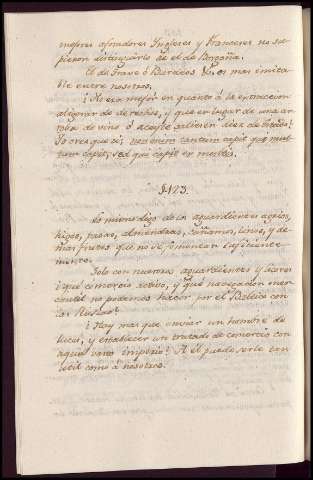 mejores afinadores Ingleses y Franceses no su-
pieron distinguirlo de el de Borgoña.
El de Grave ó Burdeos &c. es mas imita-
ble entre nosotros.
¿No era mejor en quanto á la extraccion
aligerar de derechos, y que en lugar de una ar-
roba de vino ó aceyte saliesen diez de
Yo creo que sí; non enim tantum capit qui mul-
tum capit, sed qui capit ex multis.
§ 123.
Lo mismo digo de los aguardientes, agrios,
higos, pasas, almendras, cáñamos, linos, y de-
mas frutos que no se fomentan suficiente-
mente.
Solo con nuestros aguardientes y licores
¿que comercio activo, y qué navegacion mer-
cantil no podemos hacer por el Báltico con
los Rusos?
¿Hay mas que enviar un hombre de
luces, y establecer un tratado de comercio con
aquel vasto imperio? A él puede serle tan
util como á nosotros.